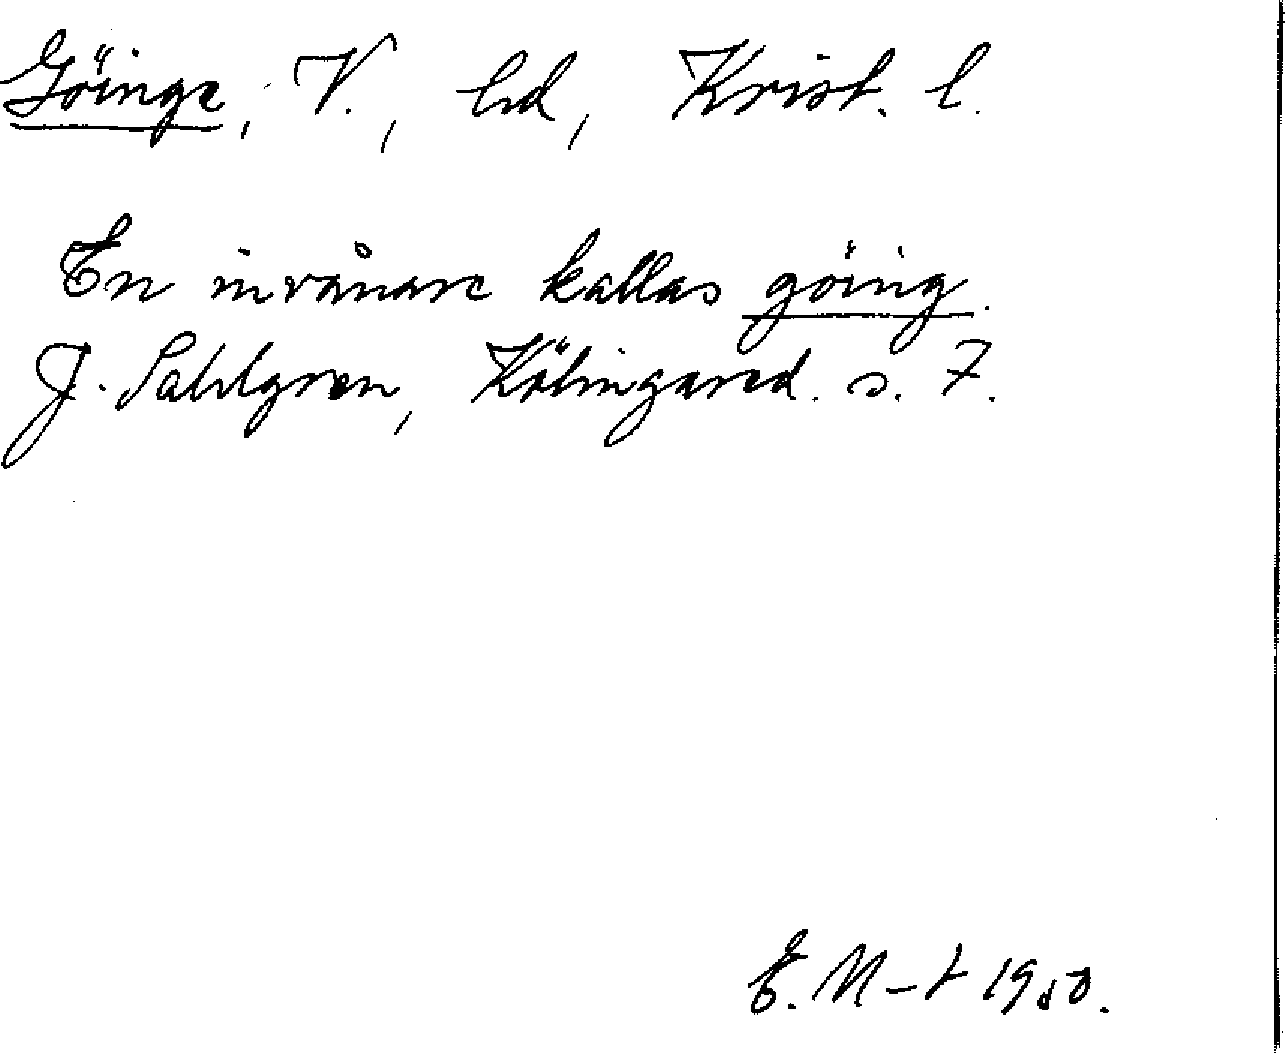 Göinge, V., hd, Krist. l.
En invånare kallas göing.
J. Sahlgren, Kölingared. s. 7.
E. M-t